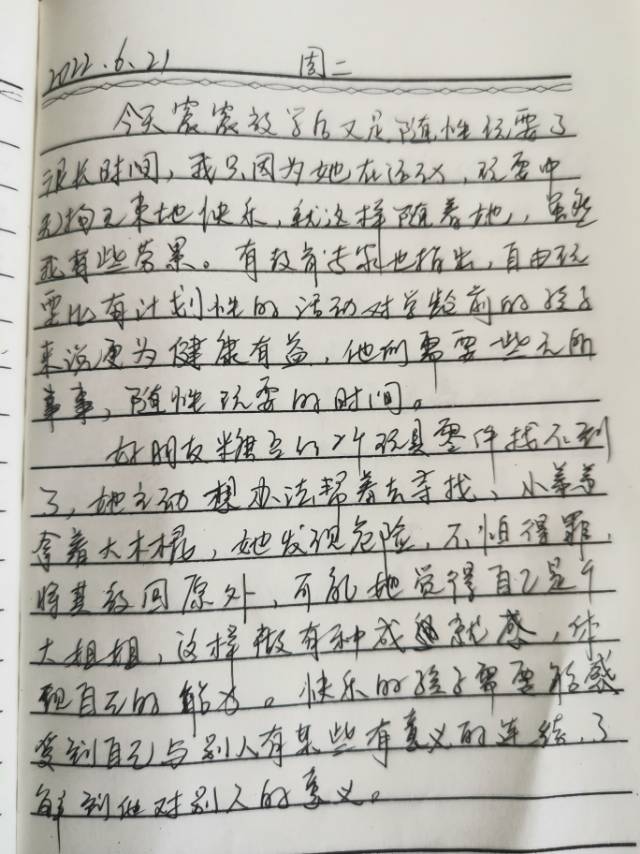 2022.6.21 周二
今天窝窝放学后又是随性玩耍了
很长时间，我只因为她在活动，玩耍中
无拘无束地快乐，就这样随着她，虽然
我有些劳累。有教育专家也指出，自由玩
耍比有计划性的活动对学龄前的孩子
来说更为健康有益，他们需要一些无所
事事，随性玩耍的时间。
好朋友糖豆的2个玩具零件找不到
了，她主动想办法帮着去寻找、小弟弟
拿着大木棍，她发现危险，不怕得罪，
将其放回原处，可能她觉得自己是个
大姐姐，这样做有种成就感，体
现自己的能力。快乐的孩子需要能感
受到自己与别人有某些有意义的连结，了
解到他对别人的意义。